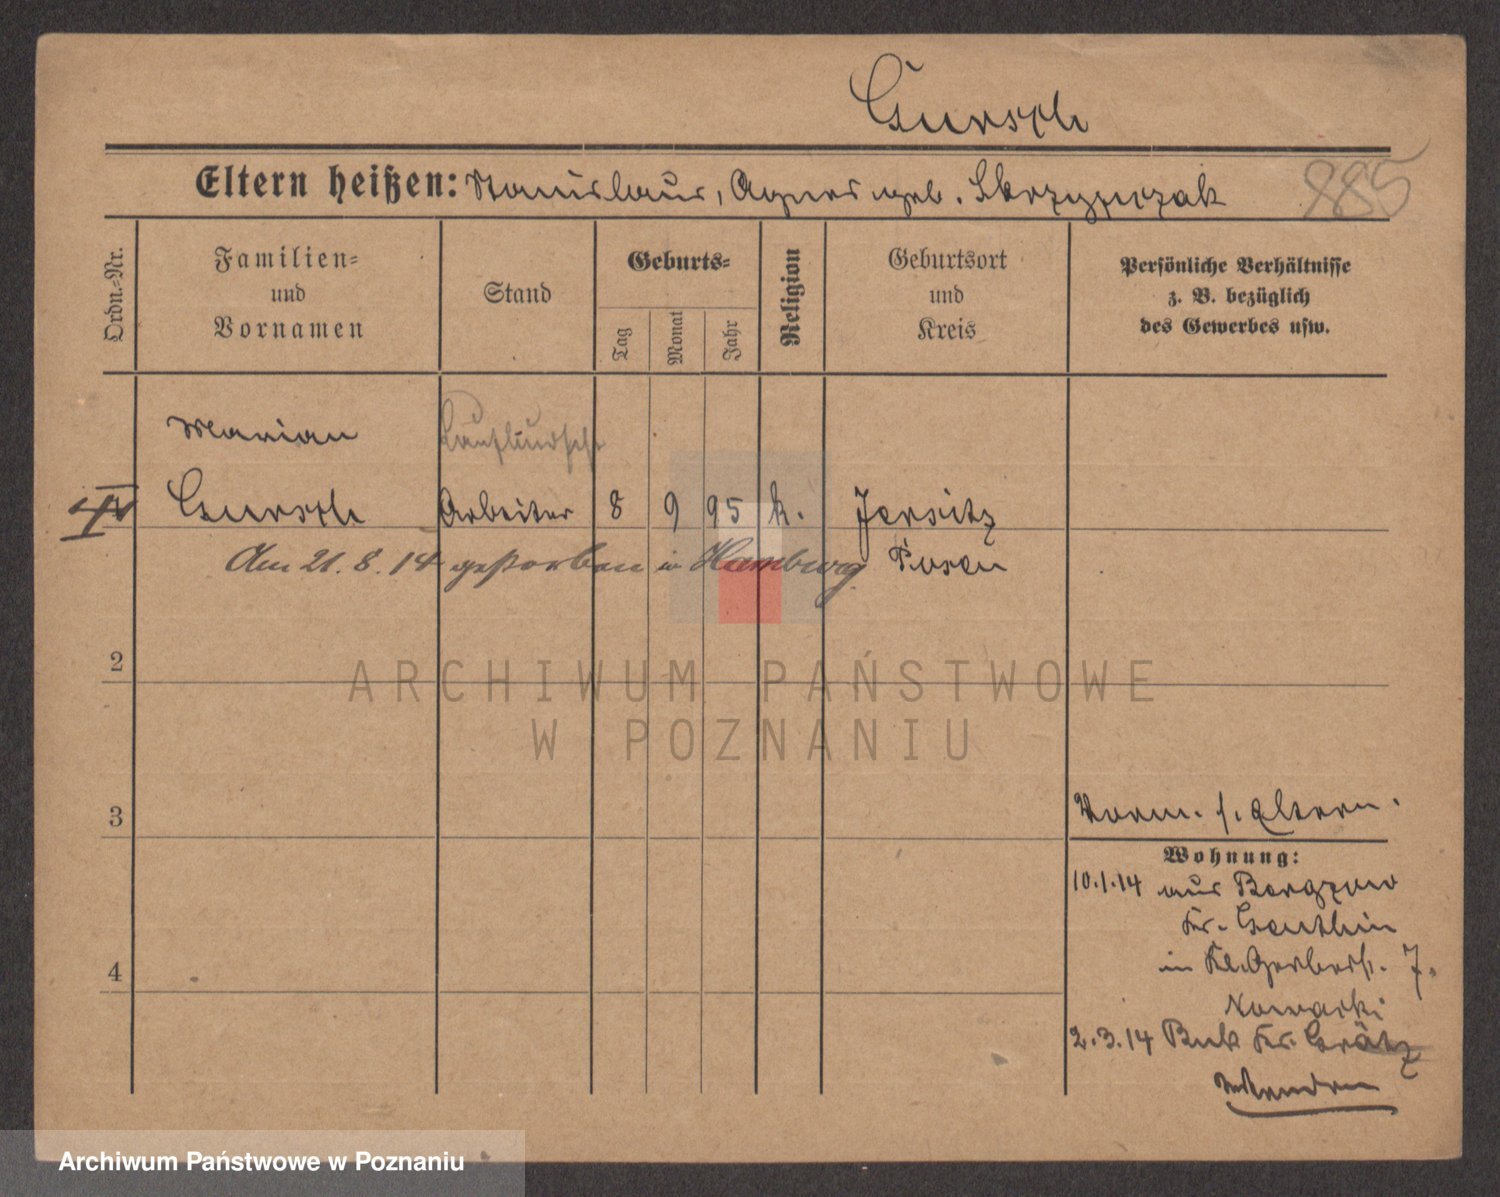 Gursch
Eltern heißen: Stanislaus, Agnes geb. Skrzypczak
885
Ordn.-Nr.
Familien-
und
Vornamen
Stand
Geburts-
Tag
Monat
Jahr
Religion
Geburtsort
und
Kreis
Persönliche Verhältnisse
z. B. bezüglich
des Gewerbes usw.
Marian
Laufbursche
Gursch Arbeiter 8 9 95 k. Jersitz
Am 21. 8. 14 gestorben in Hamburg. Posen
2
3
4
Vorm. s. Eltern.
Wohnung:
10.1.14 aus Bergzow
Kr. Genthin
in Kl. Gerberst. 7.
Nowacki
2.3.14 Buk Kr. Grätz
wenden
ARCHIWUM PAŃSTWOWE
W POZNANIU
Archiwum Państwowe w Poznaniu